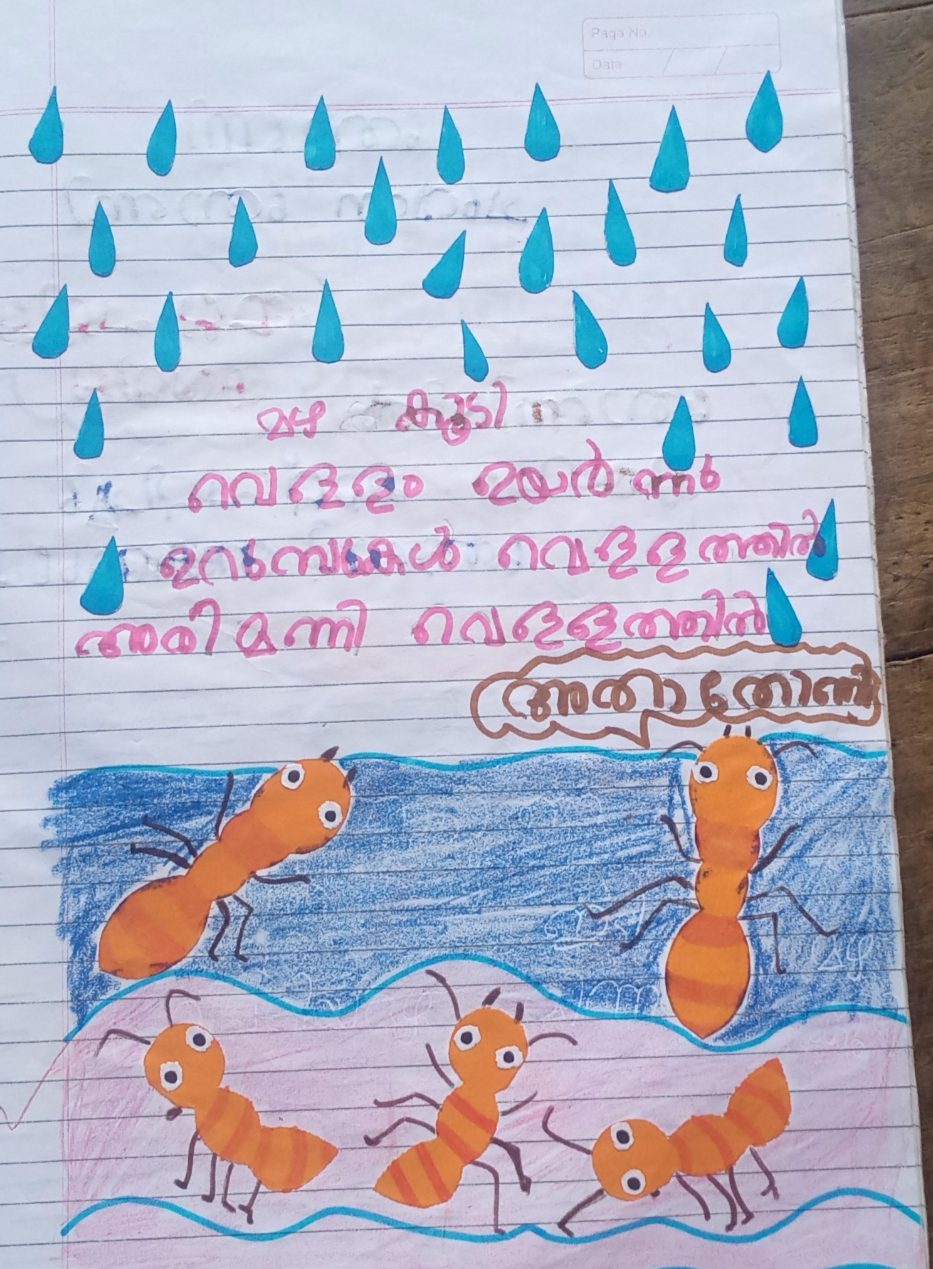 Page No.
Date
മഴ കൂടി
വെള്ളം ഉയർന്നു
ഉറുമ്പുകൾ വെള്ളത്തിൽ
അരിമന്നി വെള്ളത്തിൽ
അതാ തോണി